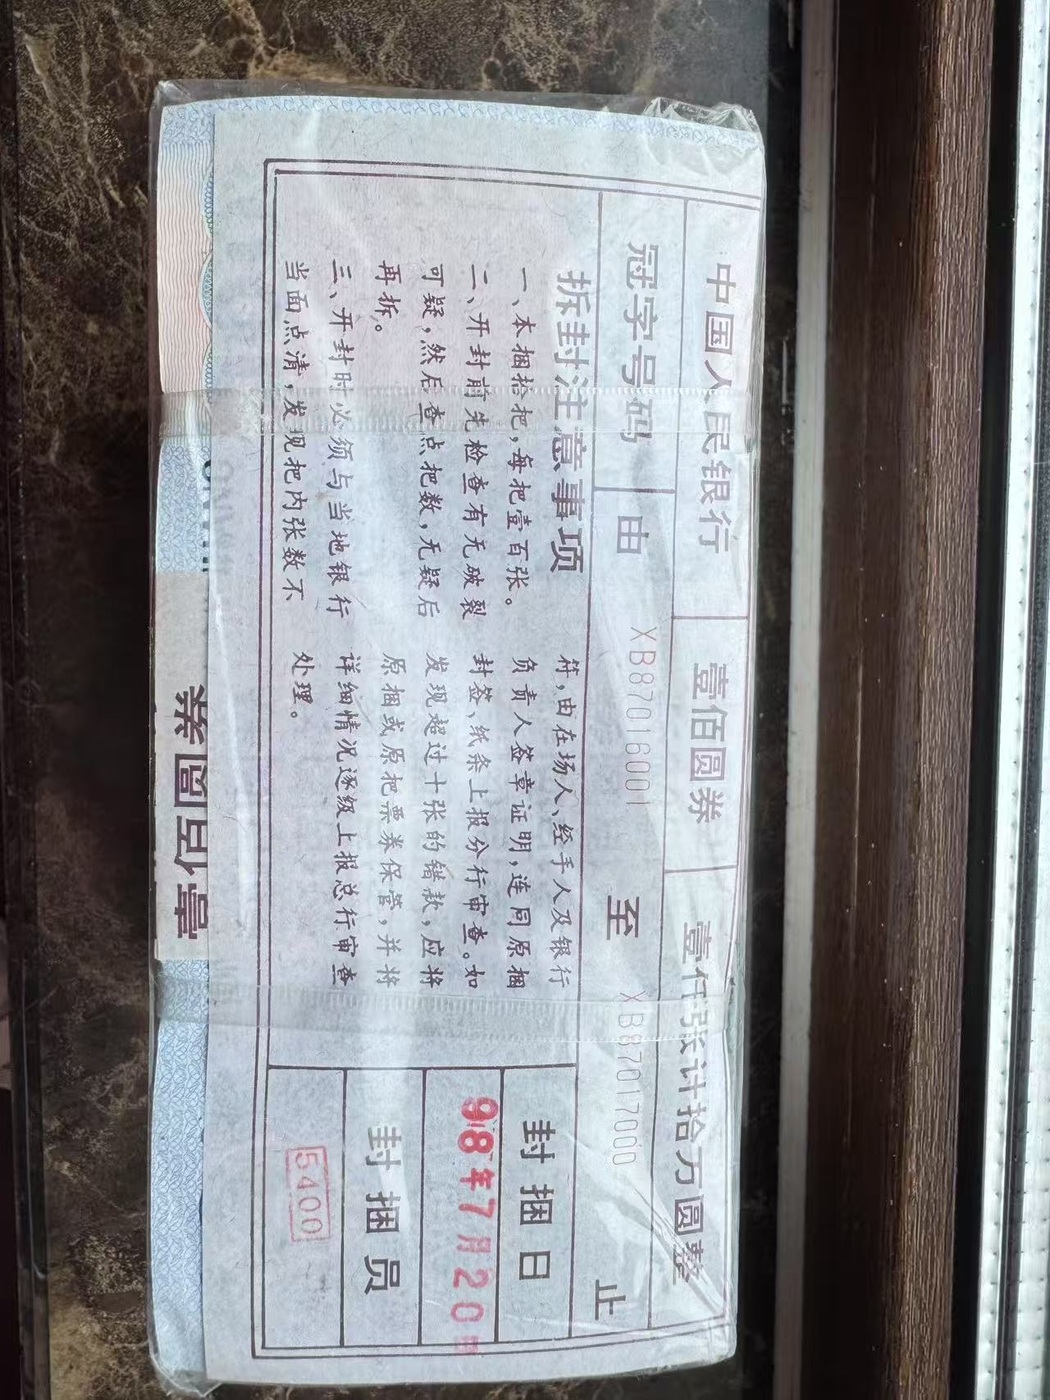 中国人民银行
壹佰圆券
壹仟张计拾万圆整
冠字号码
由
XB87016001
至
XB87017000
止
拆封注意事项
一、本捆拾把，每把壹百张。
二、开封前先检查有无破裂
可疑，然后查点把数，无疑后
再拆。
三、开封时必须与当地银行
当面点清，发现把内张数不
符，由在场人、经手人及银行
负责人签章证明，连同原捆
封签、纸条上报分行审查。如
发现超过十张的错款，应将
原捆或原把票券保管，并将
详细情况逐级上报总行审查
处理。
封捆日
98年7月20日
封捆员
5400
壹佰圆券